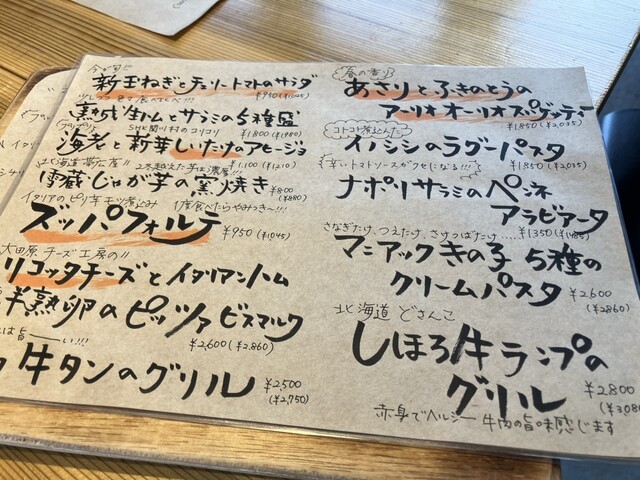 今が旬!!
新玉ねぎとチェリートマトのサラダ
¥950(¥1045)
熟成生ハムとサラミの5種盛
¥1800(¥1980)
SHと関川村のコリコリ
海老と新華しいたけのアヒージョ
¥1,100(¥1210)
北海道帯広産!! 2冬越えた芋は濃厚!!
雪蔵じゃが芋の窯焼き
¥800
(¥880)
イタリアのピリ辛モツ煮込み 1度食べたらやみつき〜!!!
ズッパフォルテ
¥950(¥1045)
大田原チーズ工房の!!
リコッタチーズとイタリアントム
半熟卵のピッツァビスマルク
¥2,600(¥2,860)
は旨ーい!!!
牛タンのグリル
¥2,500
(¥2,750)
春の香り
あさりとふきのとうの
アーリオオーリオスパゲッティ
¥1850(¥2,035)
コトコト煮込んだ
イノシシのラグーパスタ
¥1850(¥2,035)
辛いトマトソースがクセになる!!!
ナポリサラミのペンネ
アラビアータ
¥1350(¥1485)
さなぎたけ、つえたけ、さけつばたけ・・・・
マニアックきの子5種の
クリームパスタ
¥2,600
(¥2860)
北海道 どさんこ
しほろ牛ランプの
グリル
¥2800
(¥3080
赤身でヘルシー 牛肉の旨味感じます